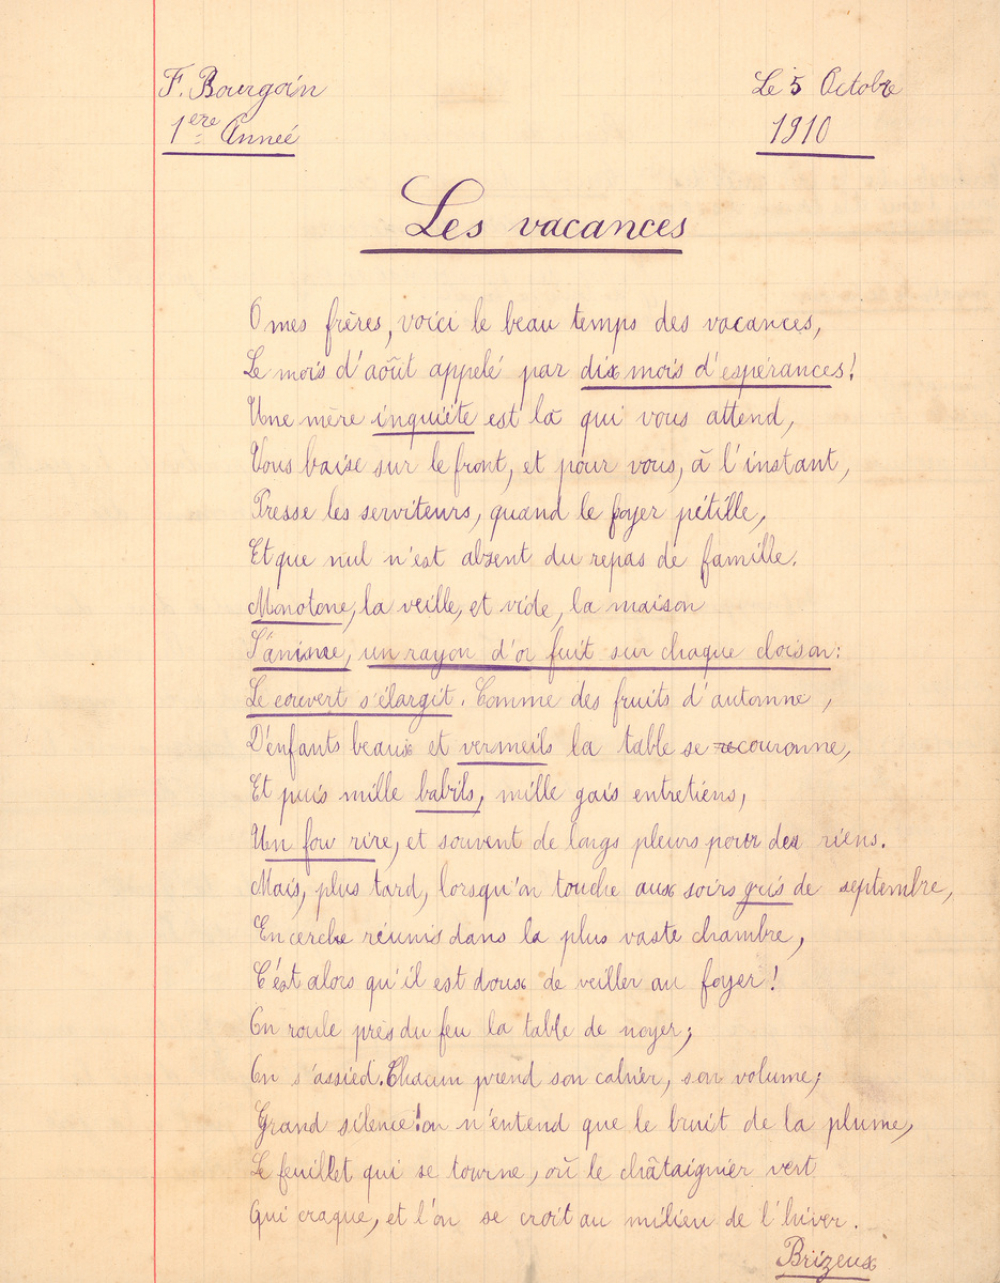 F. Bourgoin
Le 5 Octobre
1ère Année
1910
Les vacances
O mes frères, voici le beau temps des vacances,
Le mois d'août appelé par dix mois d'espérances!
Une mère inquiète est là qui vous attend,
Vous baise sur le front, et pour vous, à l'instant,
Presse les serviteurs, quand le foyer pétille,
Et que nul n'est absent du repas de famille.
Monotone, la veille, et vide, la maison
S'anime, un rayon d'or fuit sur chaque cloison:
Le couvert s'élargit. Comme des fruits d'automne,
D'enfants beaux et vermeils la table se recouronne,
Et puis mille babils, mille gais entretiens,
Un fou rire, et souvent de longs pleurs pour des riens.
Mais, plus tard, lorsqu'on touche aux soirs gris de septembre,
En cercle réunis dans la plus vaste chambre,
C'est alors qu'il est doux de veiller au foyer!
On roule près du feu la table de noyer;
On s'assied. Chacun prend son cahier, son volume;
Grand silence! on n'entend que le bruit de la plume,
Le feuillet qui se tourne, où le châtaignier vert
Qui craque, et l'on se croit au milieu de l'hiver.
Brizeux